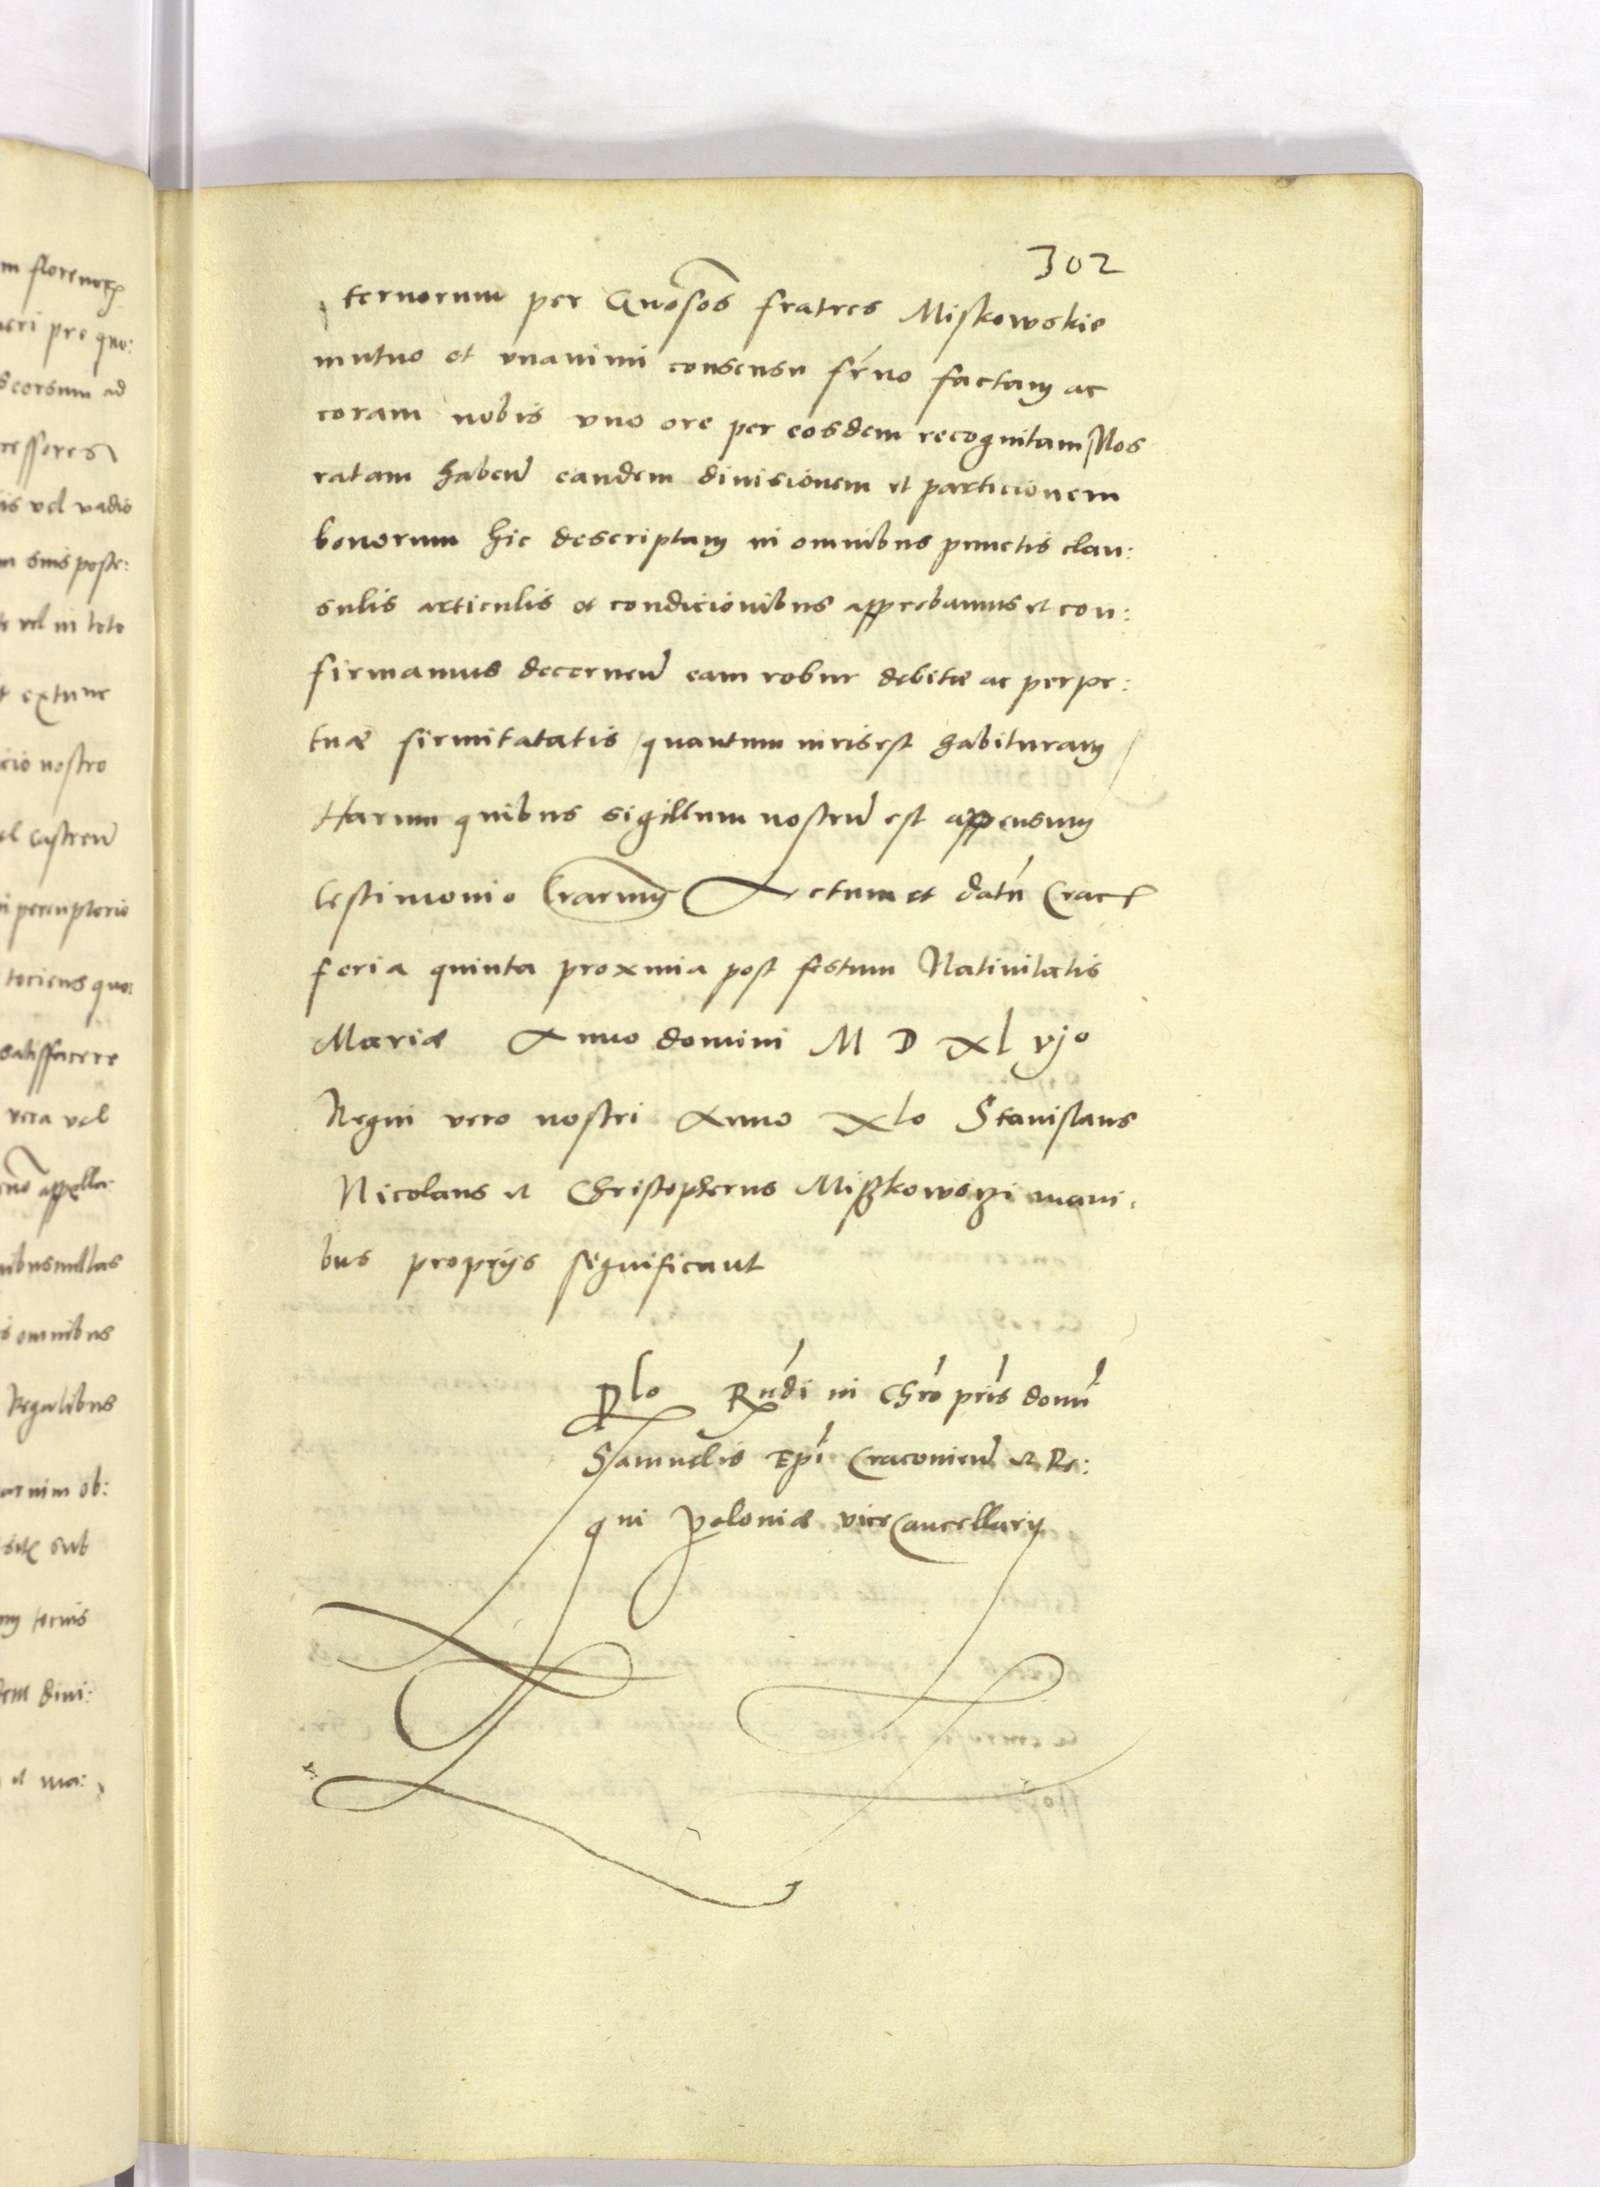 302
ternorum per Gnosos fratres Miskowskie
mutuo et vnanimi consensu factam ac
coram nobis vno ore per eosdem recognitam Nos
ratam haben eandem diuisionem et particionem
bonorum hic descriptam in omnibus punctis clau:
sulis articulis et condicionibus approbamus et con:
firmamus decernen eam robur debitæ ac perpe:
tuæ firmitatatis quantum iuris est habituram
Harum quibus sigillum nostru est appensum
testimonio lrarum Actum et datu Crac
feria quinta proxima post festum Natiuitatis
Mariæ Anno domini M D XL vjo
Regni vero nostri Anno XLo Stanislaus
Nicolaus et Christopherus Miskowszi mani:
bus proprijs significant
Rndi in Chro pris domi
Samuelis Epi Cracouien et Re:
gni Poloniæ viceCancellarij
m florenor
ueri pre quo:
seorsum ad
ressores
is vel vadio
m suis poste:
vel in toto
t extunc
cio nostro
el castren
peremptorio
tociens quo:
satisfacere
vera vel
appella:
nibus nullas
s omnibus
Regalibus
ob:
sub
tocius
em diui:
et ma: